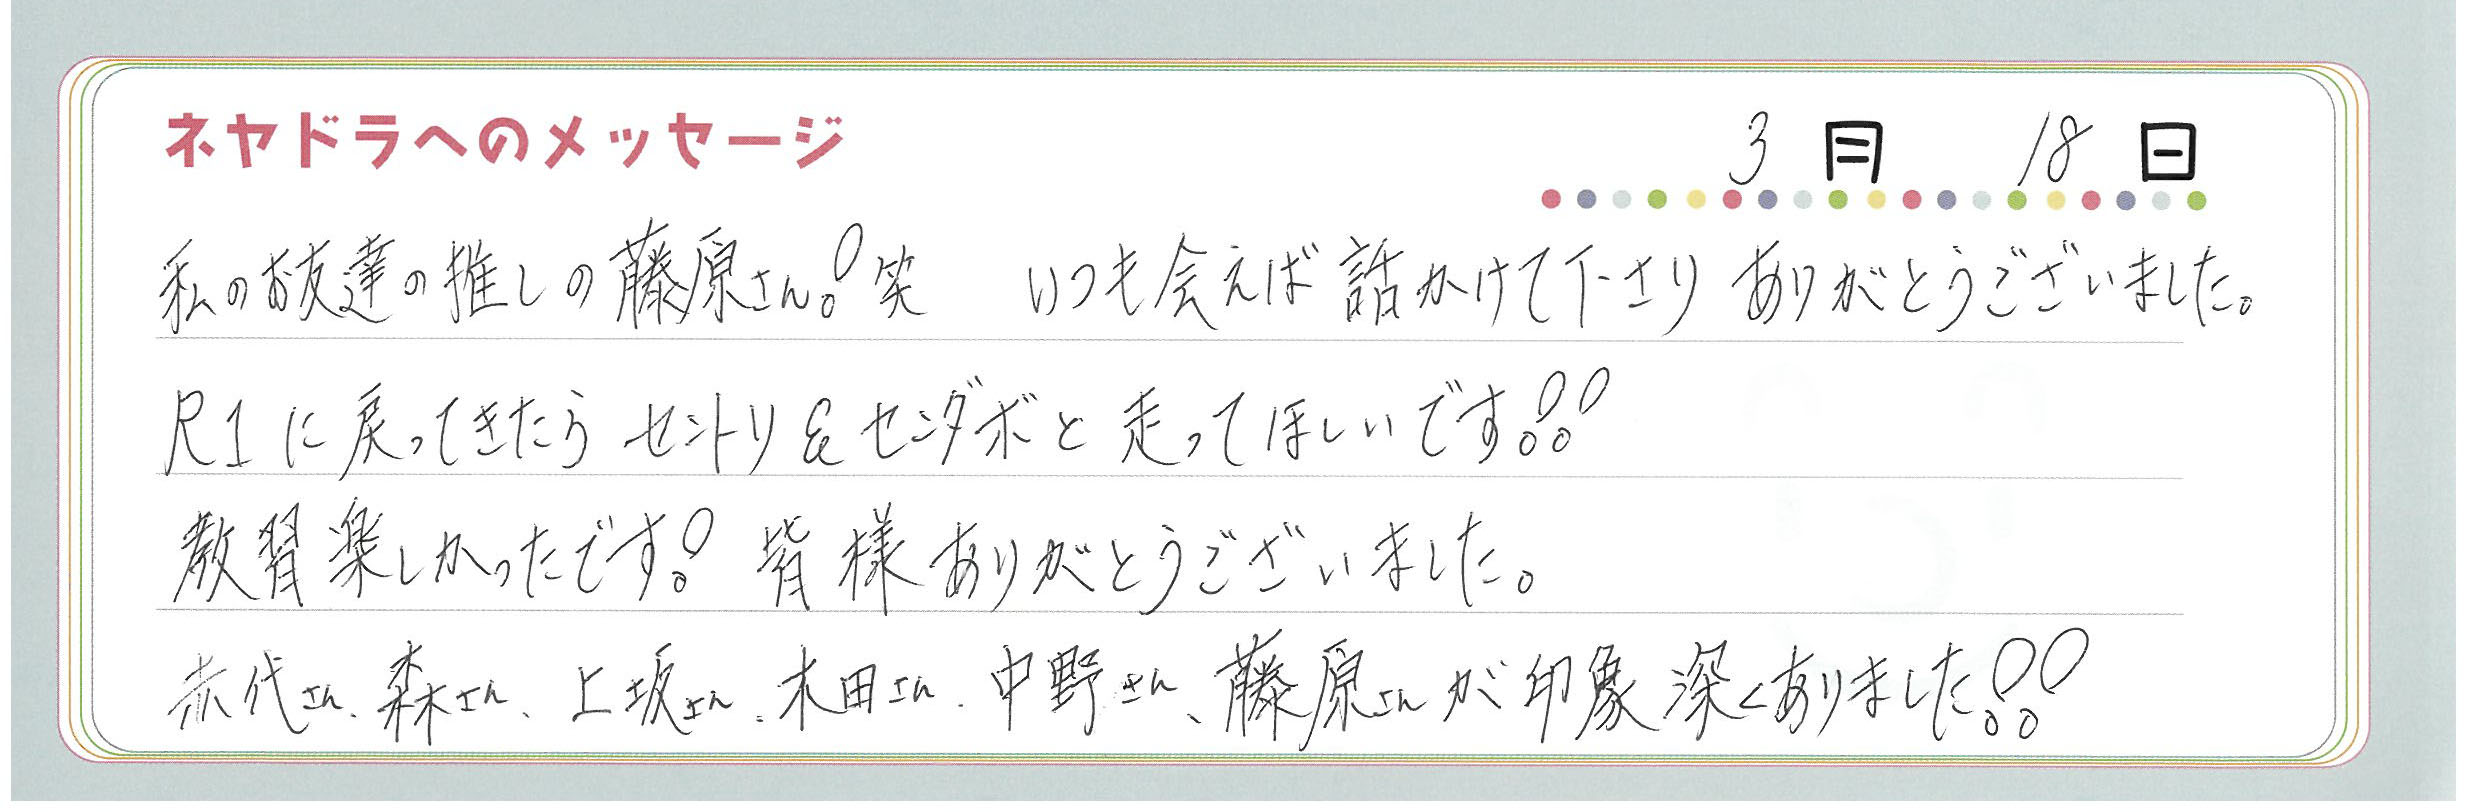 ネヤドラへのメッセージ
3月 18日
私のお友達の推しの藤原さん!笑 いつも会えば話かけて下さりありがとうございました。
R1に戻ってきたらセントリ&センダボと走ってほしいです!!
教習楽しかったです!皆様ありがとうございました。
赤代さん、森さん、上坂さん、木田さん、中野さん、藤原さんが印象深くありました!!